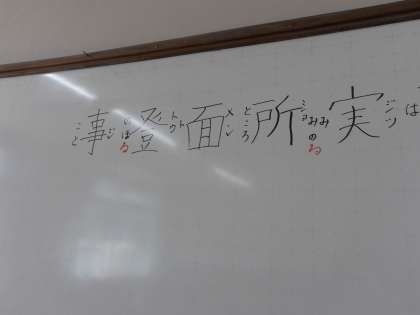 は
ジツ
実
み
みのる
ショ
所
ところ
メン
面
トウ
ト
登
ジ
事
こと